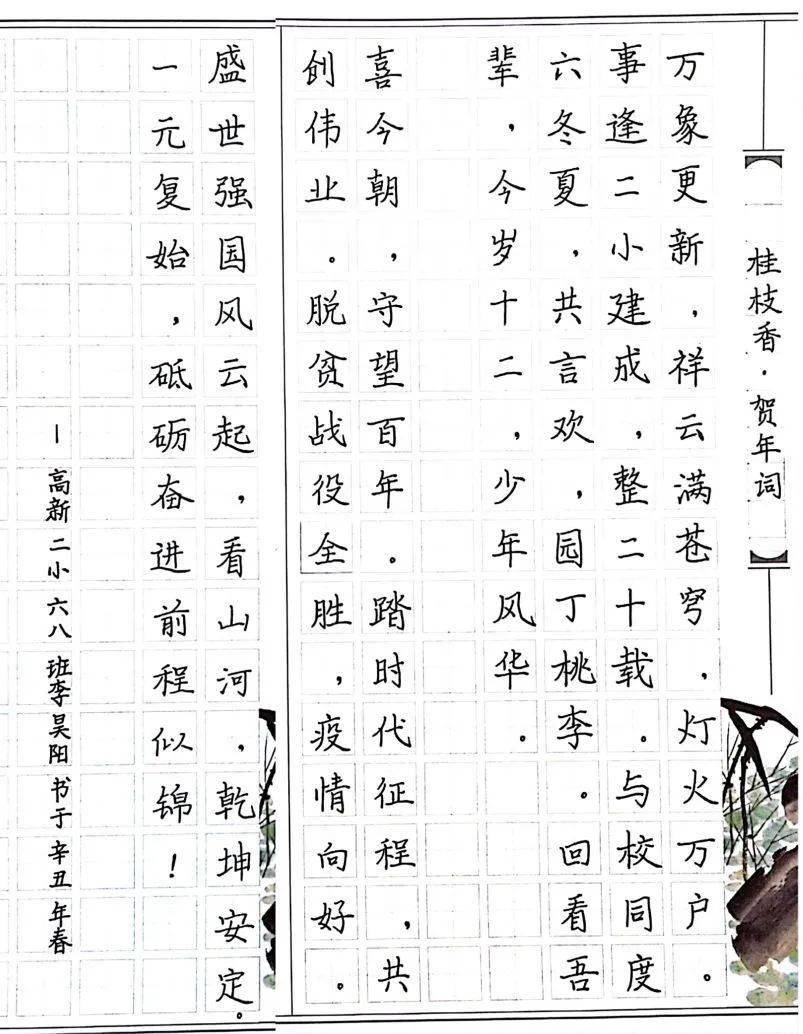 桂枝香·贺年词
万象更新，祥云满苍穹，灯火万户。
事逢二小建成，整二十载。与校同度
六冬夏，共言欢，园丁桃李。回看吾
辈，今岁十二，少年风华。
喜今朝，守望百年。踏时代征程，共
创伟业。脱贫战役全胜，疫情向好。
盛世强国风云起，看山河，乾坤安定。
一元复始，砥砺奋进前程似锦！
—高新二小六八班李昊阳书于辛丑年春